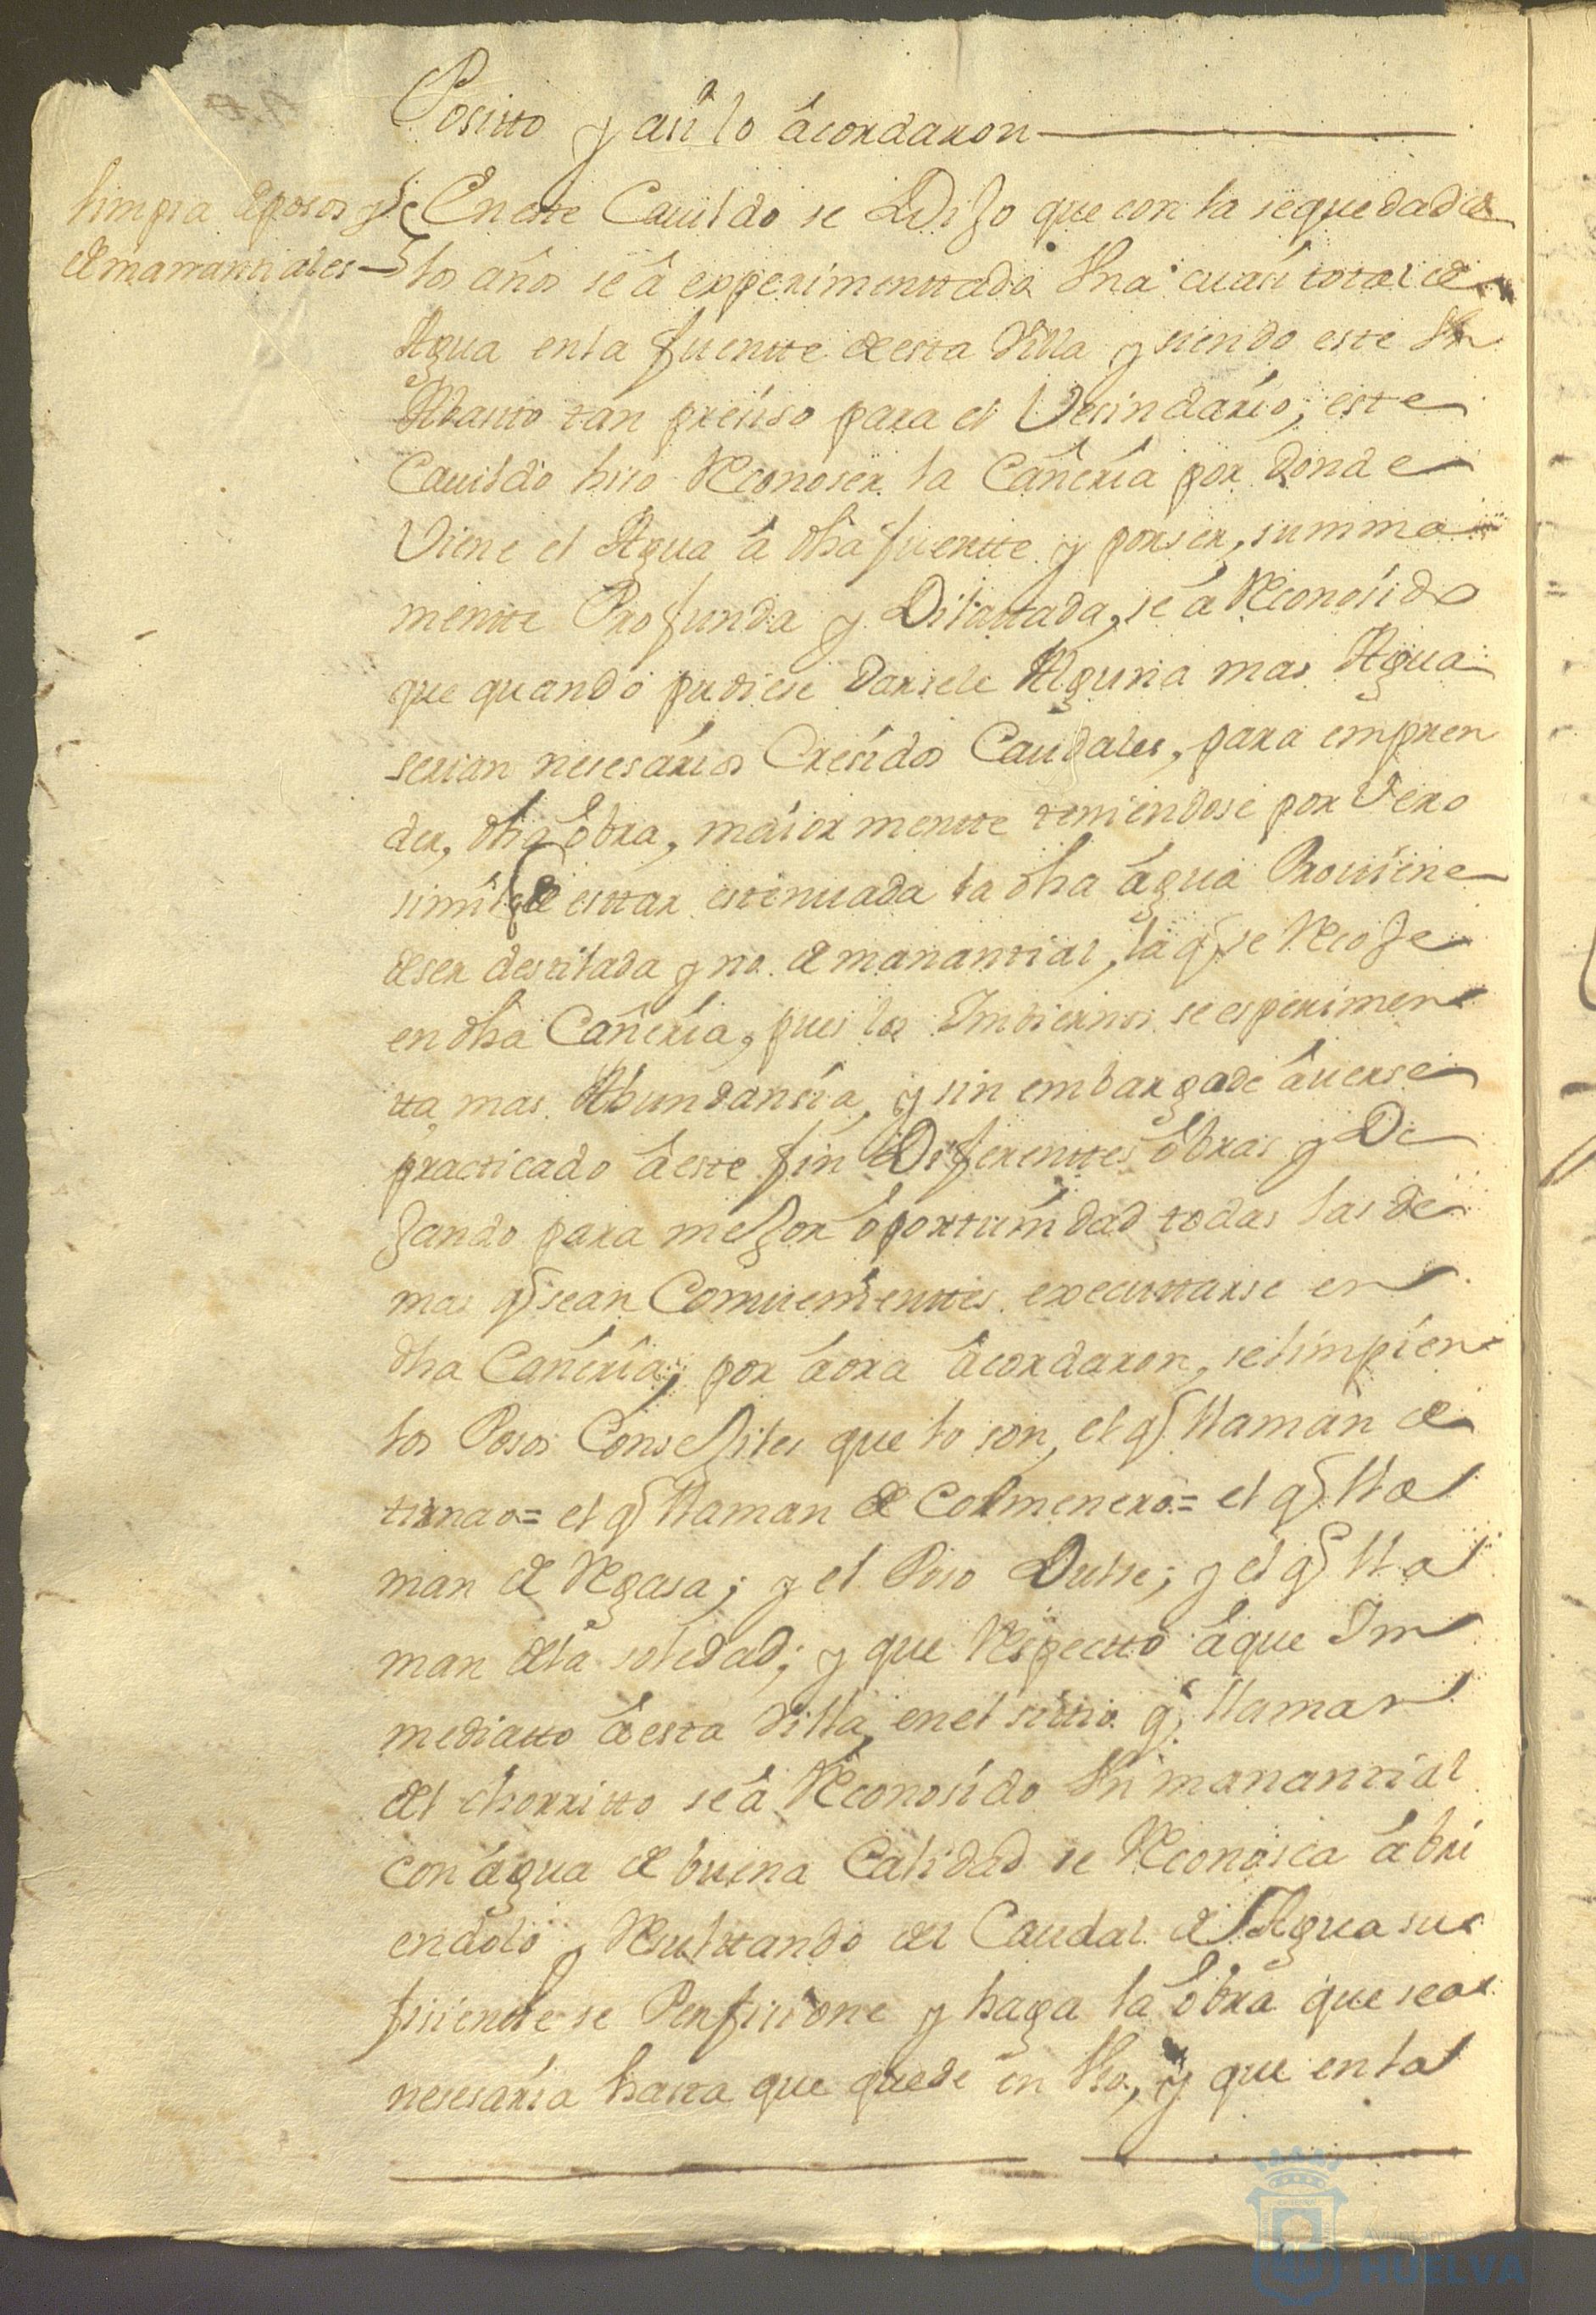 Positto y asi lo acordaron
limpia de posos y
de manantiales
En este Cauildo se Dijo que con la sequedad de
los años se â experimenttado Vna cuasi total de
Agua en la fuentte de esta Villa y siendo este Vn
Abasto tan presiso para el Vesindario, este
Cauildo hiso Reconoser la Cañeria por donde
Viene el Agua â dha fuentte y por ser, summa
mentte Profunda y Dilattada, se â Reconosido
que quando pudiese darsele Alguna mas Agua
serian nesesarios Cresidos Caudales, para empren
der, dha obra, maiormentte teniendose por Vero
simil de esttar estenuada la dha agua Prouiene
de ser destilada y no de manantial, la q se Recoje
en dha Cañeria, pues los Imbiernos se esperimen
tta mas Abundansia, y sin embargo de âuerse
practicado â este fin Diferenttes obras y De
jando para mejor oportunidad todas las de
mas q sean Comuenienttes executtarse en
dha Cañeria, por âora âcordaron, se limpien
los Posos Consejiles que lo son, el q llaman de
= el q llaman de Colmenero = el q lla
man de Regasa; y el Poso Dulse; y el q lla
man de la soledad; y que Respectto â que Im
mediatto â esta Villa, en el sittio q llaman
del chorritto se â Reconosido Vn manantial
con âgua de buena Calidad se Reconosca âbri
endolo y Resulttando del Caudal de Agua su
fisientte se Perfisione y haga la obra que sea
nesesaria hasta que quede en Vso, y que en la
Ayuntamiento
HUELVA